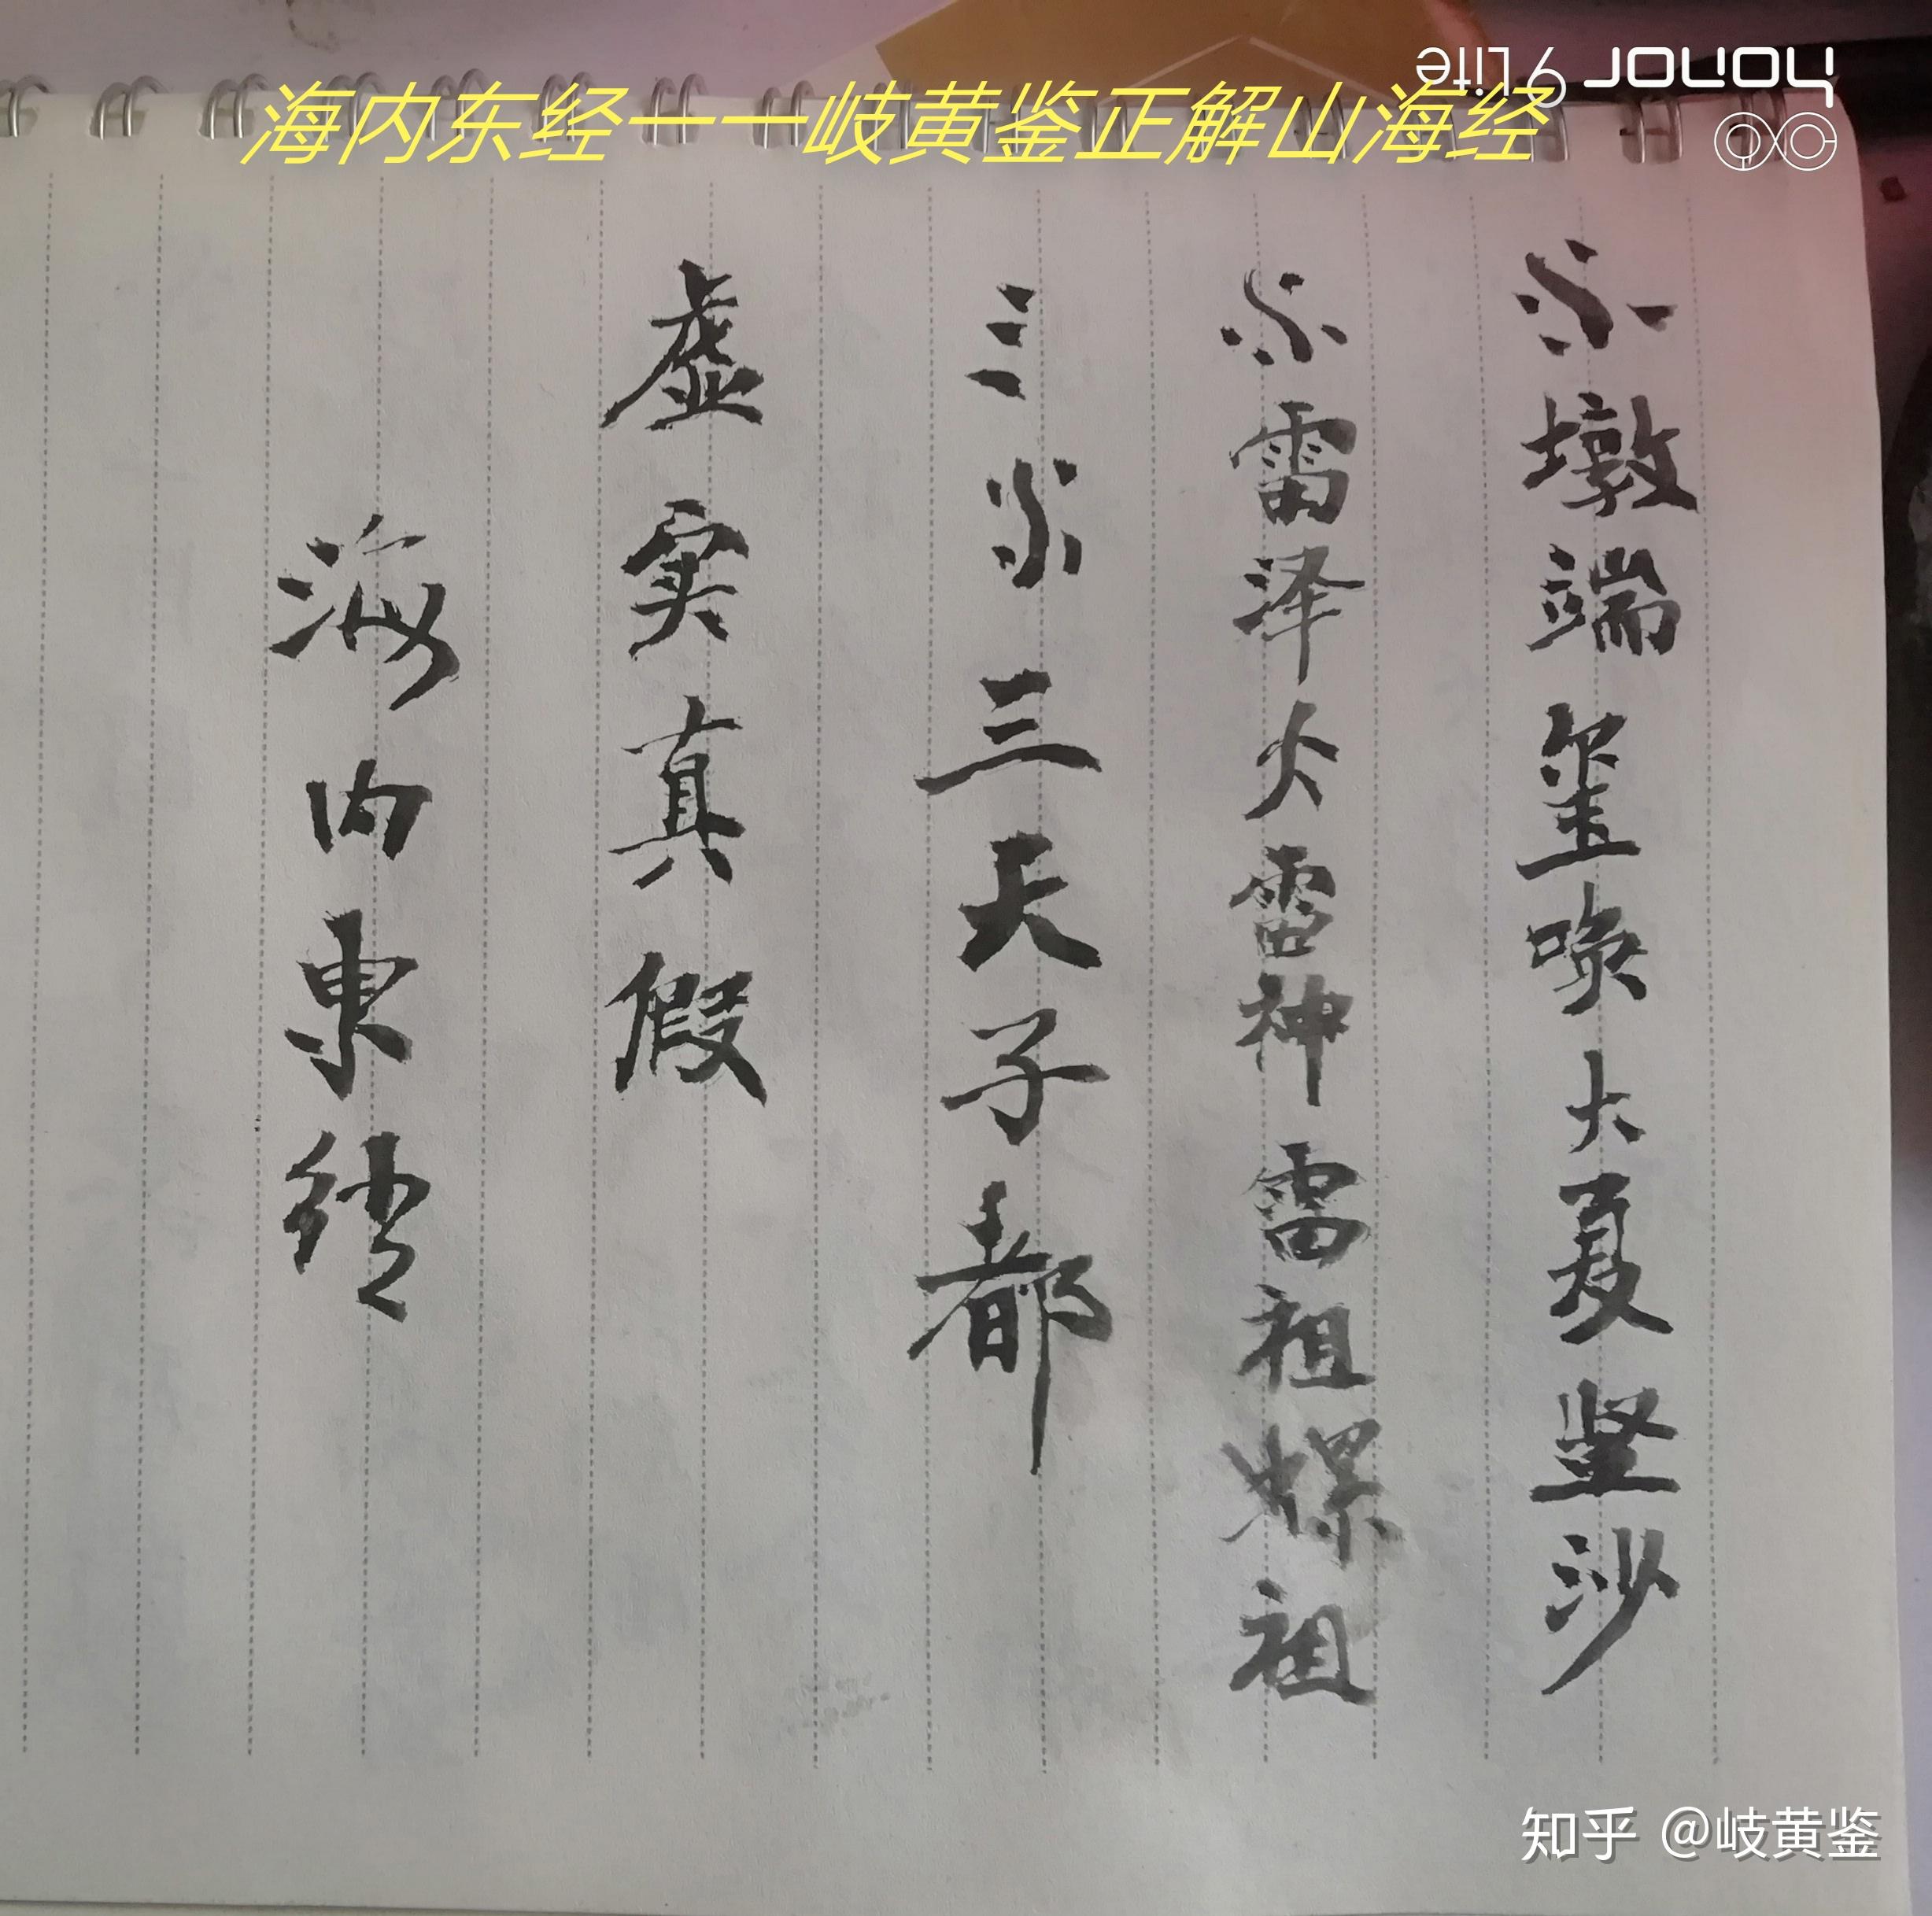 honor 9 Lite
海内东经一一岐黄鉴正解山海经
墩端玺唤大夏竖沙
雷泽火雷神雷祖嫘祖
三天子都
虚实真假
海内東经
知乎 @岐黄鉴